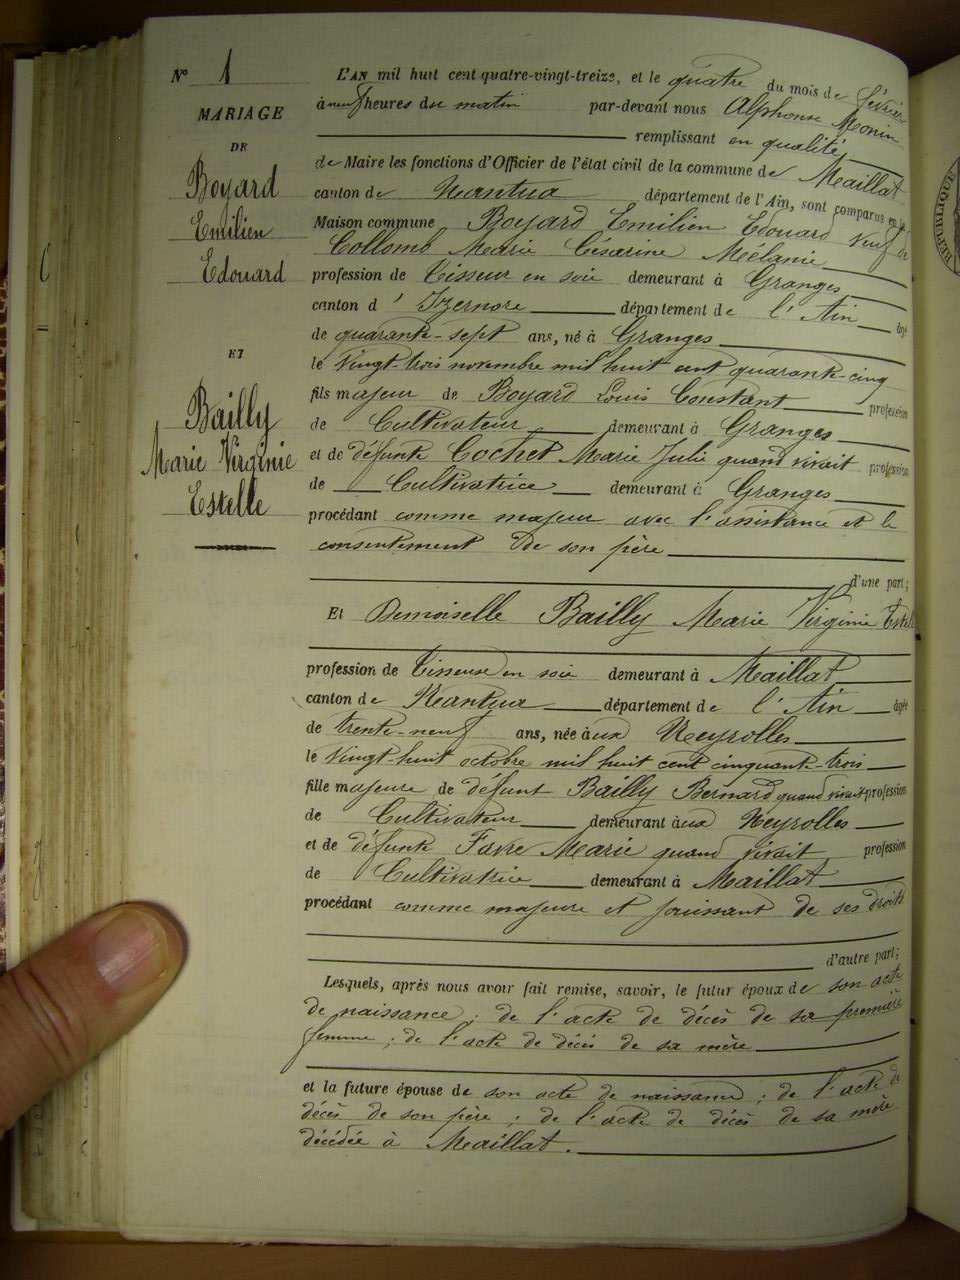 N° 1
MARIAGE
DE
Boyard
Emilien
Edouard
ET
Bailly
Marie Virginie
Estelle
L'AN mil huit cent quatre-vingt-treize, et le quatre du mois de février
à neuf heures du matin par-devant nous Alphonse Monin
remplissant en qualité
de Maire les fonctions d'Officier de l'état civil de la commune de Maillat
canton de Nantua département de l'Ain, sont comparus en la
Maison commune Boyard Emilien Edouard veuf de
Collomb Marie Césarine Mélanie
profession de Tisseur en soie demeurant à Granges
canton d' Izernore département de l'Ain âgé
de quarante-sept ans, né à Granges
le vingt-trois novembre mil huit cent quarante-cinq
fils majeur de Boyard Louis Constant profession
de Cultivateur demeurant à Granges
et de défunte Cochet Marie Julie quand vivait profession
de Cultivatrice demeurant à Granges
procédant comme majeur avec l'assistance et le
consentement de son père
d'une part;
Et Demoiselle Bailly Marie Virginie Estelle
profession de Tisseuse en soie demeurant à Maillat
canton de Nantua département de l'Ain âgée
de trente-neuf ans, née à aux Neyrolles
le vingt-huit octobre mil huit cent cinquante-trois
fille majeure de défunt Bailly Bernard quand vivait profession
de Cultivateur demeurant à aux Neyrolles
et de défunte Favre Marie quand vivait profession
de Cultivatrice demeurant à Maillat
procédant comme majeure et jouissant de ses droits
d'autre part;
Lesquels, après nous avoir fait remise, savoir, le futur époux de son acte
de naissance; de l'acte de décès de sa première
femme; de l'acte de décès de sa mère
et la future épouse de son acte de naissance; de l'acte de
décès de son père; de l'acte de décès de sa mère
décédée à Maillat.
REPUBLIQUE